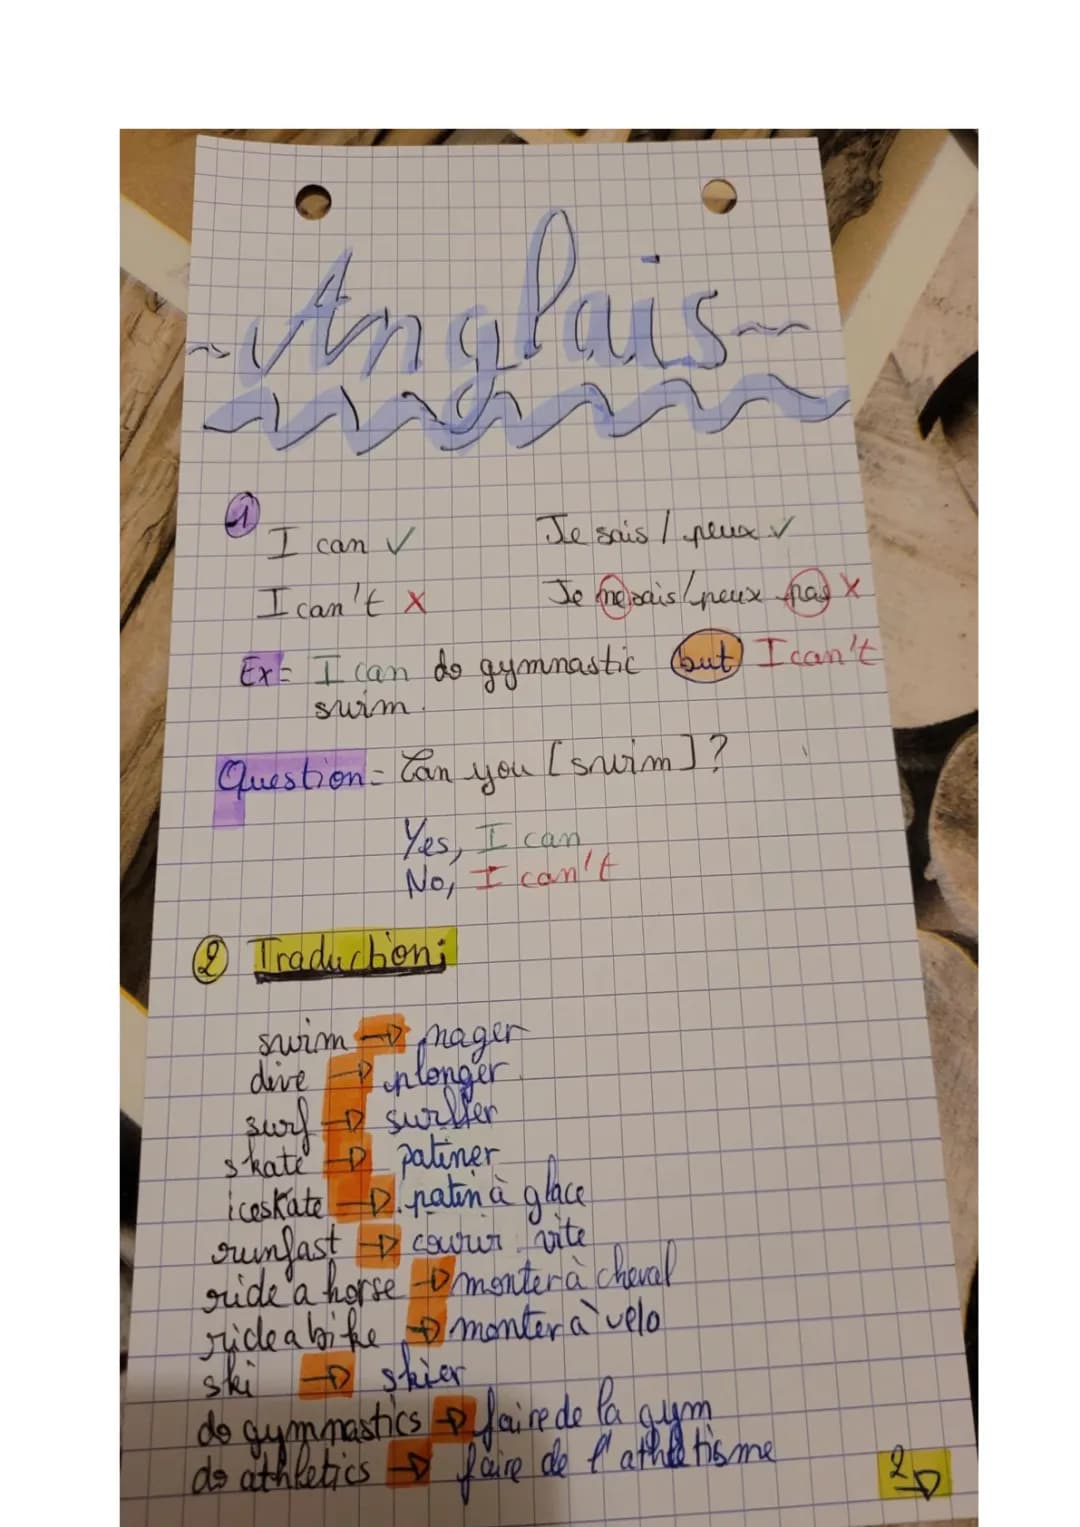 ~Anglais~
1
I can ✓ Je sais / peux ✓
I can't x Je ne sais/peux pas x
Ex = I can do gymnastic but I can't
swim.
Question = Can you [swim]?
Yes, I can
No, I can't
2 Traduction:
swim → nager
dive → plonger
surf → surffer
skate → patiner
iceskate → patin à glace
runfast → courir vite
ride a horse → monter à cheval
ride a bike → monter à vélo
ski → skier
do gymnastics → faire de la gym
do athletics → faire de l'athlétisme
2→